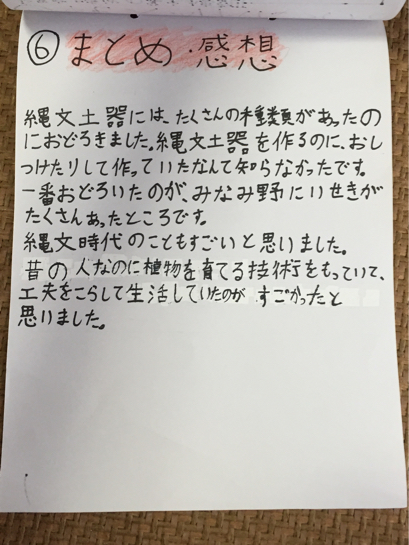 ⑥まとめ・感想
縄文土器には、たくさんの種類があったの
におどろきました。縄文土器を作るのに、おし
つけたりして作っていたなんて知らなかったです。
一番おどろいたのが、みなみ野にいせきが
たくさんあったところです。
縄文時代のこともすごいと思いました。
昔の人なのに植物を育てる技術をもっていて、
工夫をこらして生活していたのがすごかったと
思いました。